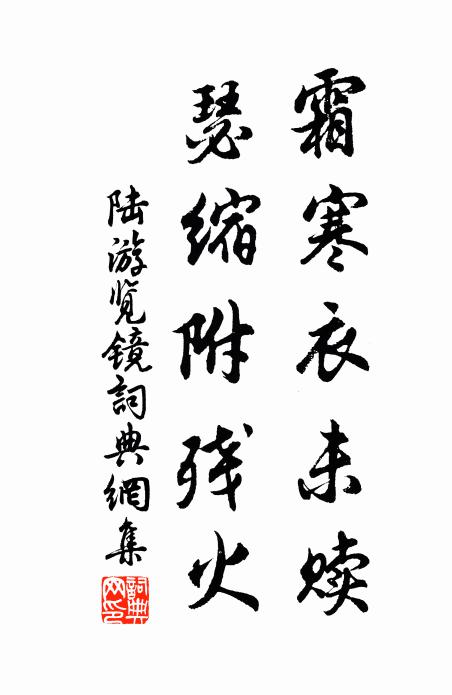 霜寒衣未赎
瑟缩附残火
陆游览镜詞典網集
詞典網印